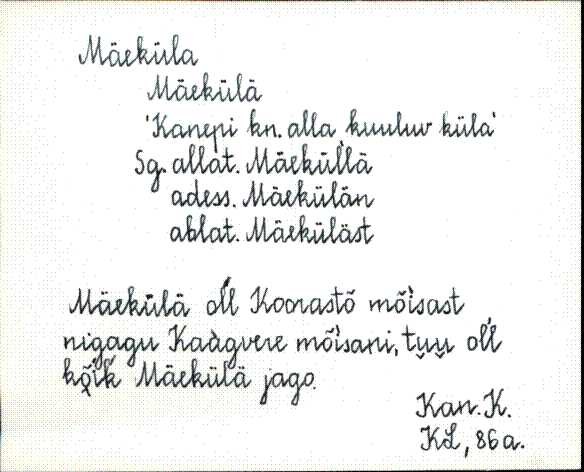 Mäeküla
Mäekülä
'Kanepi kn. alla kuuluv küla'
Sg. allat. Mäekül'lä
adess. Mäekülän
ablat. Mäeküläst
Mäekülä oĺl Koorastõ mõisast
nigagu Kaagvere mõisani, tuu oĺl
kõiḱ Mäekülä jago.
Kan. K.
KL, 86 a.